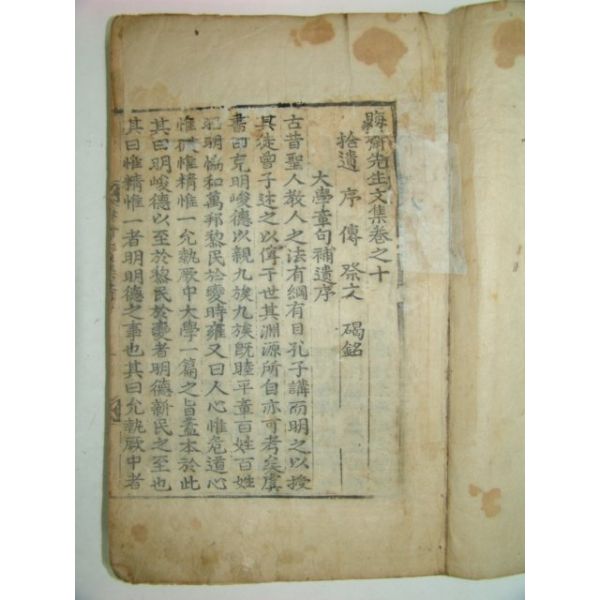 晦齋先生文集卷之十
拾遺 序 傳 祭文 碣銘
大學章句補遺序
古昔聖人教人之法有綱有目孔子講而明之以授
其徒曾子述之以傳于世其淵源所自亦可考矣虞
書曰克明峻德以親九族九族旣睦平章百姓百姓
昭明恊和萬邦黎民於變時雍又曰人心惟危道心
惟微惟精惟一允執厥中大學一篇之旨蓋本於此
其曰明峻德以至於黎民於變者明德新民之至也
其曰惟精惟一者明明德之事也其曰允執厥中者